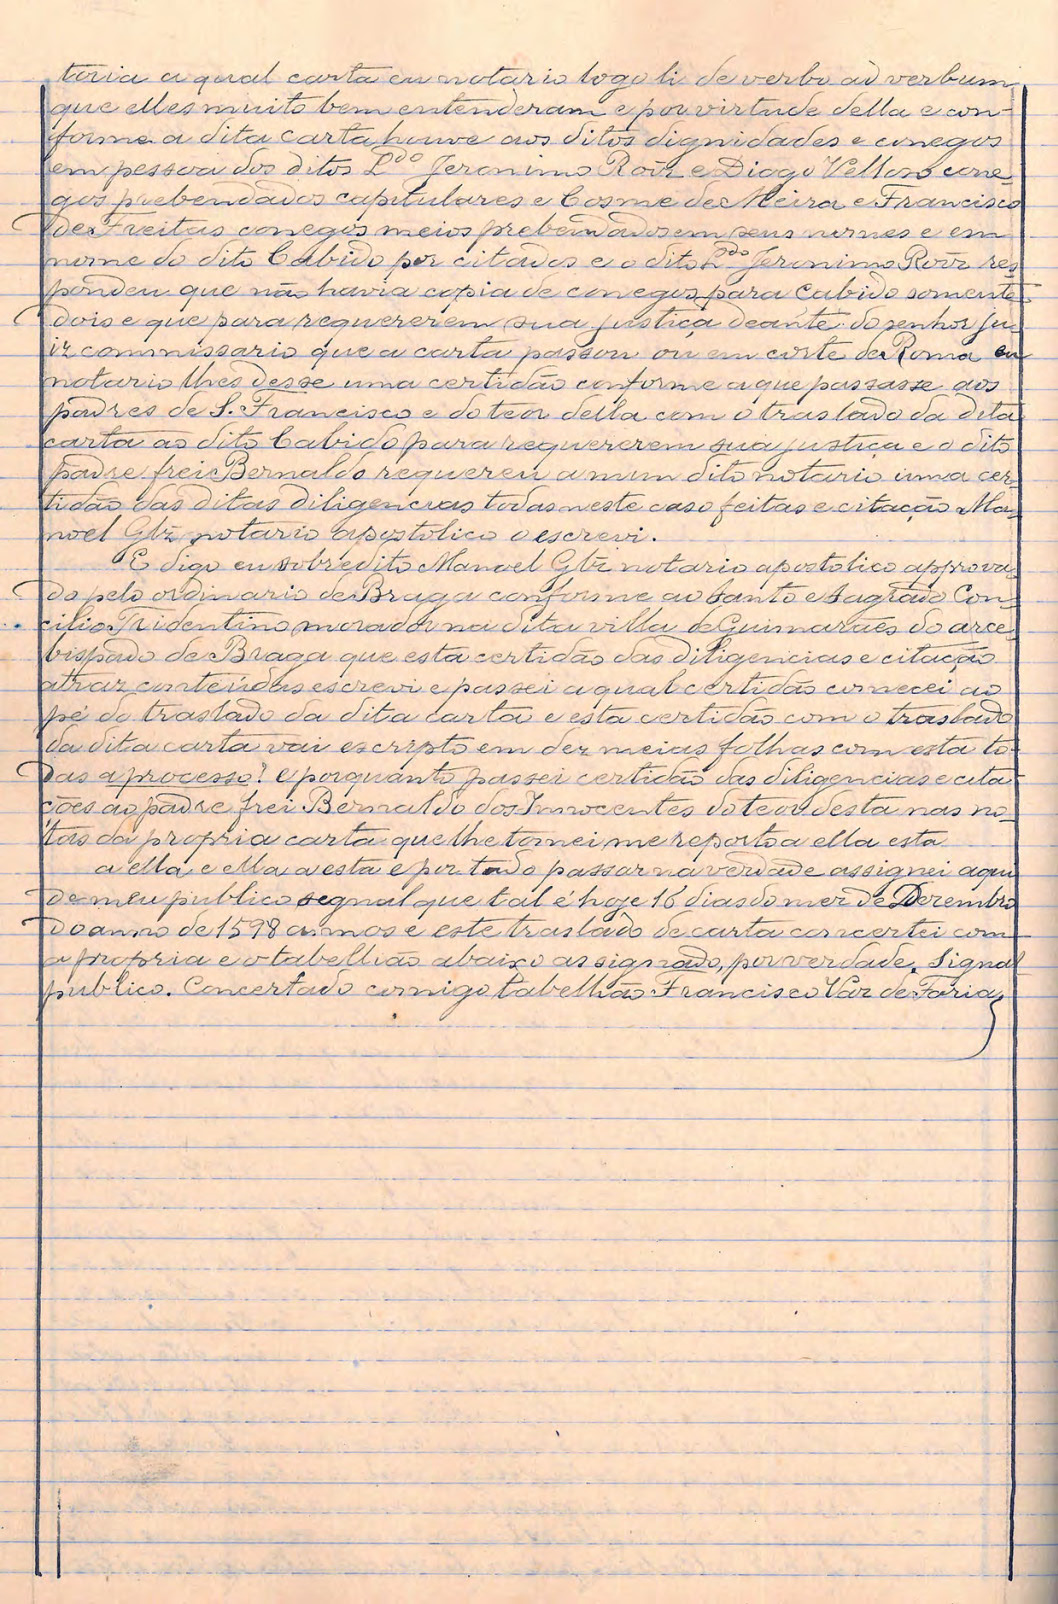 toria a qual carta eu notario logo li de verbo ad verbum
que elles muito bem entenderam e por virtude della e con-
forme a dita carta houve aos ditos dignidades e conegos
em pessoa dos ditos L.do Jeronimo Roiz e Diogo Velloso cone-
gos prebendados capitulares e Cosme de Meira e Francisco
de Freitas conegos meios prebendados em seus nomes e em
nome do dito Cabido por citados e o dito L.do Jeronimo Roiz res-
pondeu que não havia copia de conegos para Cabido somente
dois e que para requererem sua justiça deante do senhor ju-
iz commissario que a carta passou ou em corte de Roma eu
notario lhes desse uma certidão conforme a que passasse aos
padres de S. Francisco e do teor della com o traslado da dita
carta ao dito Cabido para requererem sua justiça e o dito
padre frei Bernaldo requereu a mim dito notario uma cer-
tidão das ditas diligencias todas neste caso feitas e citação Ma-
noel Glz notario apostolico o escrevi.
E digo eu sobredito Manoel Glz notario apostolico approva-
do pelo ordinario de Braga conforme ao Santo e Sagrado Con-
cilio Tridentino morador na dita villa de Guimarães do arce-
bispado de Braga que esta certidão das diligencias e citação
atraz conteúdas escrevi e passei a qual certidão comecei ao
pé do traslado da dita carta e esta certidão com o traslado
da dita carta vai escripto em dez meias folhas com esta to-
das a processo? e porquanto passei certidão das diligencias e cita-
ções ao padre frei Bernaldo dos Innocentes do teor desta nas no-
tas da propria carta que lhe tornei me reporto a ella esta
a ella e ella a esta e por tudo passar na verdade assignei aqui
de meu publico segnal que tal é hoje 16 dias do mez de Dezembro
do anno de 1598 annos e este traslado de carta concertei com
a propria e o tabellião abaixo assignado, por verdade. Signal
publico. Concertado comigo tabellião Francisco Vaz de Faria